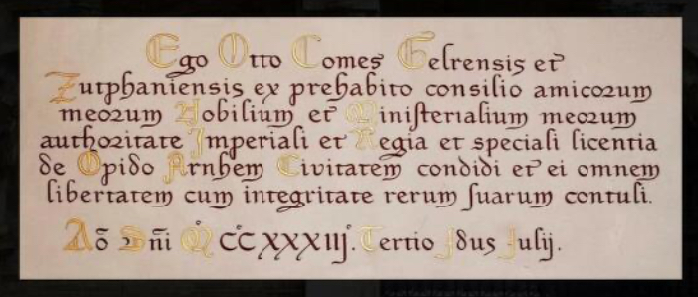 Ego Otto Comes Gelrensis et
Zutphaniensis ex prehabito consilio amicorum
meorum Nobilium et Ministerialium meorum
authoritate Imperiali et Regia et speciali licentia
de Opido Arnhem Civitatem condidi et ei omnem
libertatem cum integritate rerum suarum contuli.
Aō Dn̄i M CC XXXIIJ. Tertio Idus Julij.